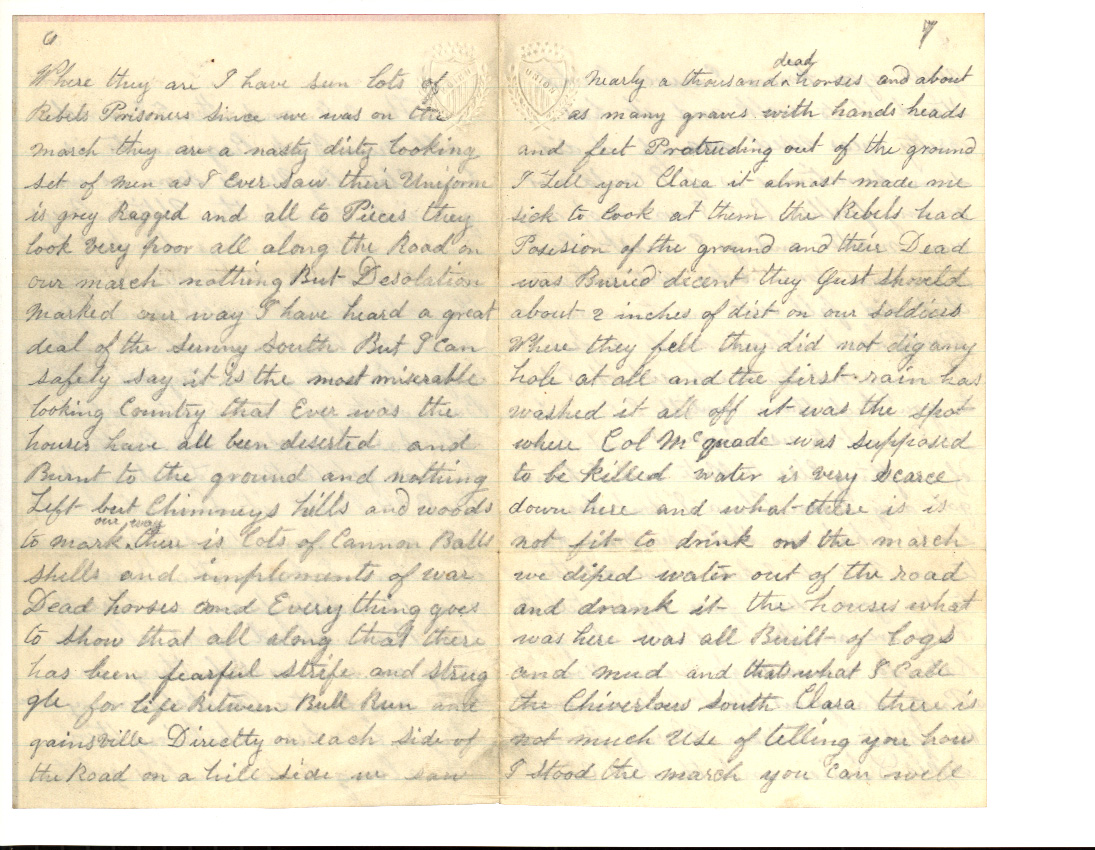 6
Where they are I have sun lots of
Rebels Prisoners since we was on the
march they are a nasty dirty looking
set of men as I Ever saw their Uniform
is grey Ragged and all to Pieces they
look very poor all along the Road on
our march nothing But Desolation
Marked our way I have heard a great
deal of the Sunny South But I Can
safely say it is the most miserable
looking Country that Ever was the
houses have all been deserted and
Burnt to the ground and nothing
Left but Chimneys hills and woods
to mark our way there is lots of Cannon Balls
shells and impliments of war
Dead horses and Every thing goes
to show that all along that there
has been fearful strife and strug
gle for life Between Bull Run and
gainsville Directly on each side of
the Road on a hill side we saw
7
UNION
UNION
nearly a thousand dead horses and about
as many graves with hands heads
and feet Protruding out of the ground
I Tell you Clara it almost made me
sick to look at them the Rebels had
Posision of the ground and their Dead
was Buried dicent they Just shoveld
about 2 inches of dirt on our soldiers
Where they fell they did not dig any
hole at all and the first rain has
washed it all off it was the spot
where Col McQuade was supposed
to be killed water is very scarce
down here and what there is is
not fit to drink on the march
we diped water out of the road
and drank it the houses what
was here was all Built of Logs
and mud and that what I Call
the Chiverlous South Clara there is
not much Use of telling you how
I stood the march you can well